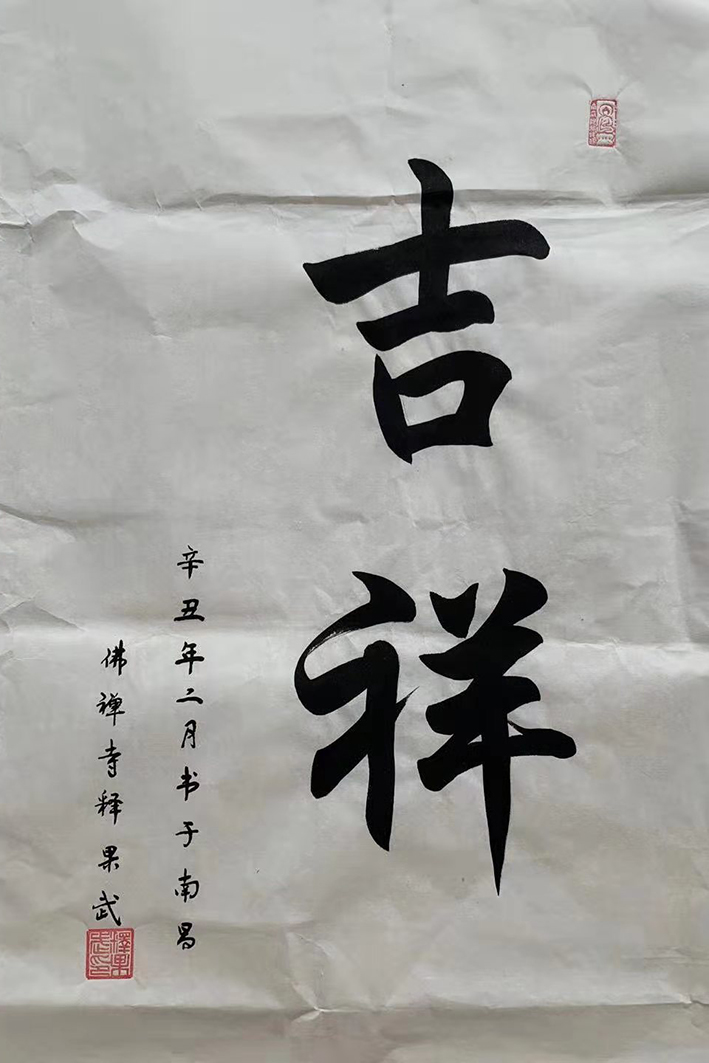 吉祥
辛丑年二月书于南昌
佛禅寺释果武